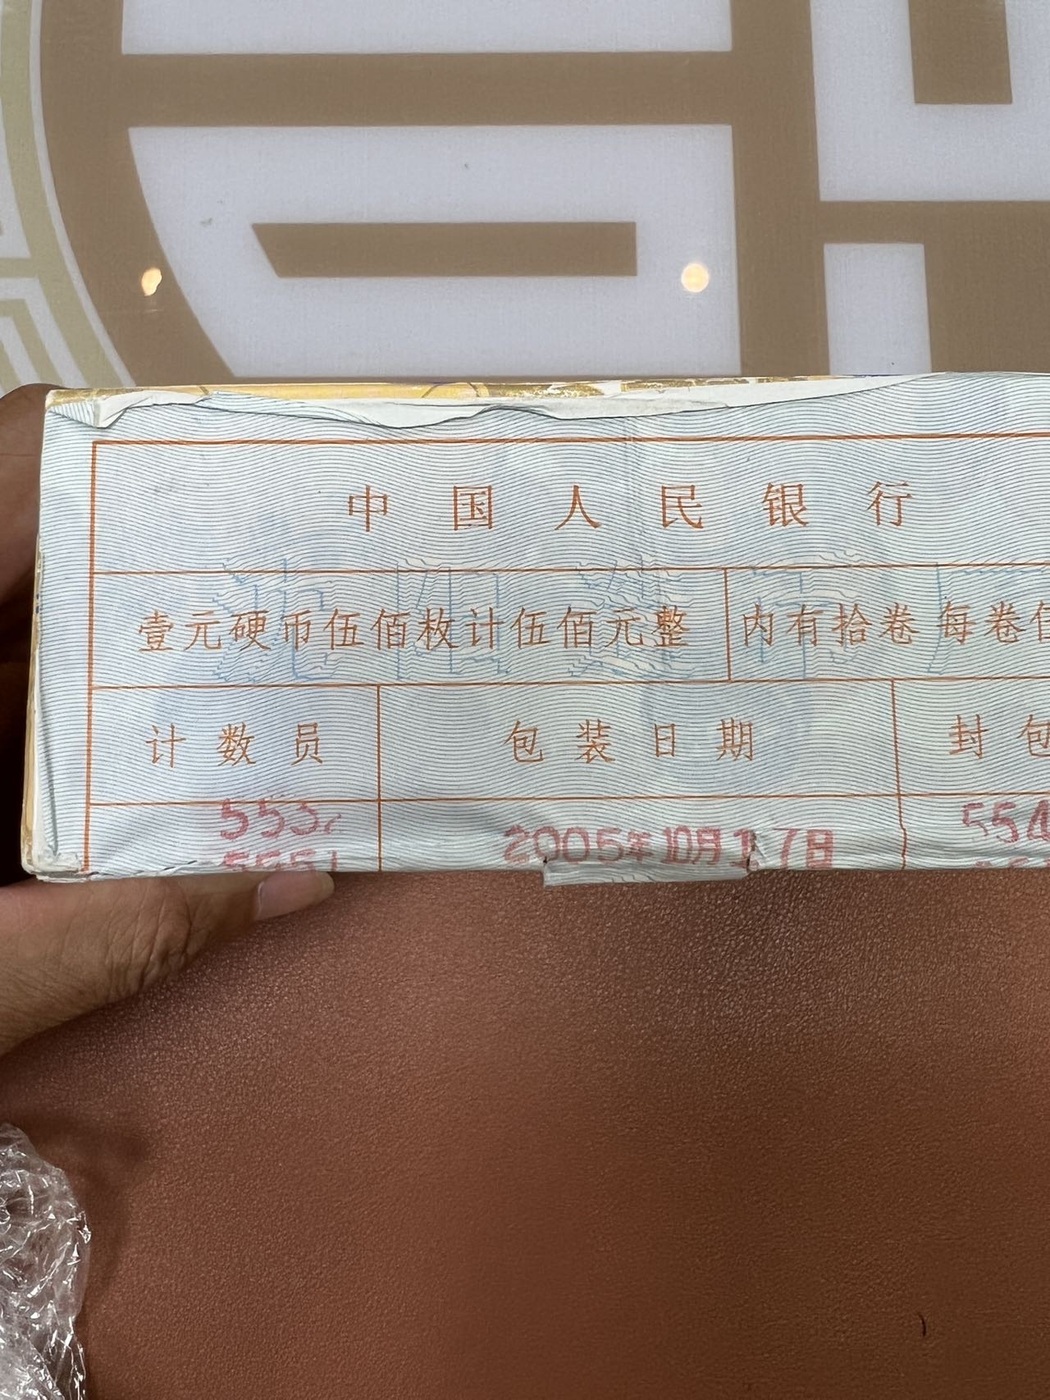 中国人民银行
壹元硬币伍佰枚计伍佰元整 内有拾卷 每卷
计数员 包装日期 封包
2005年10月17日